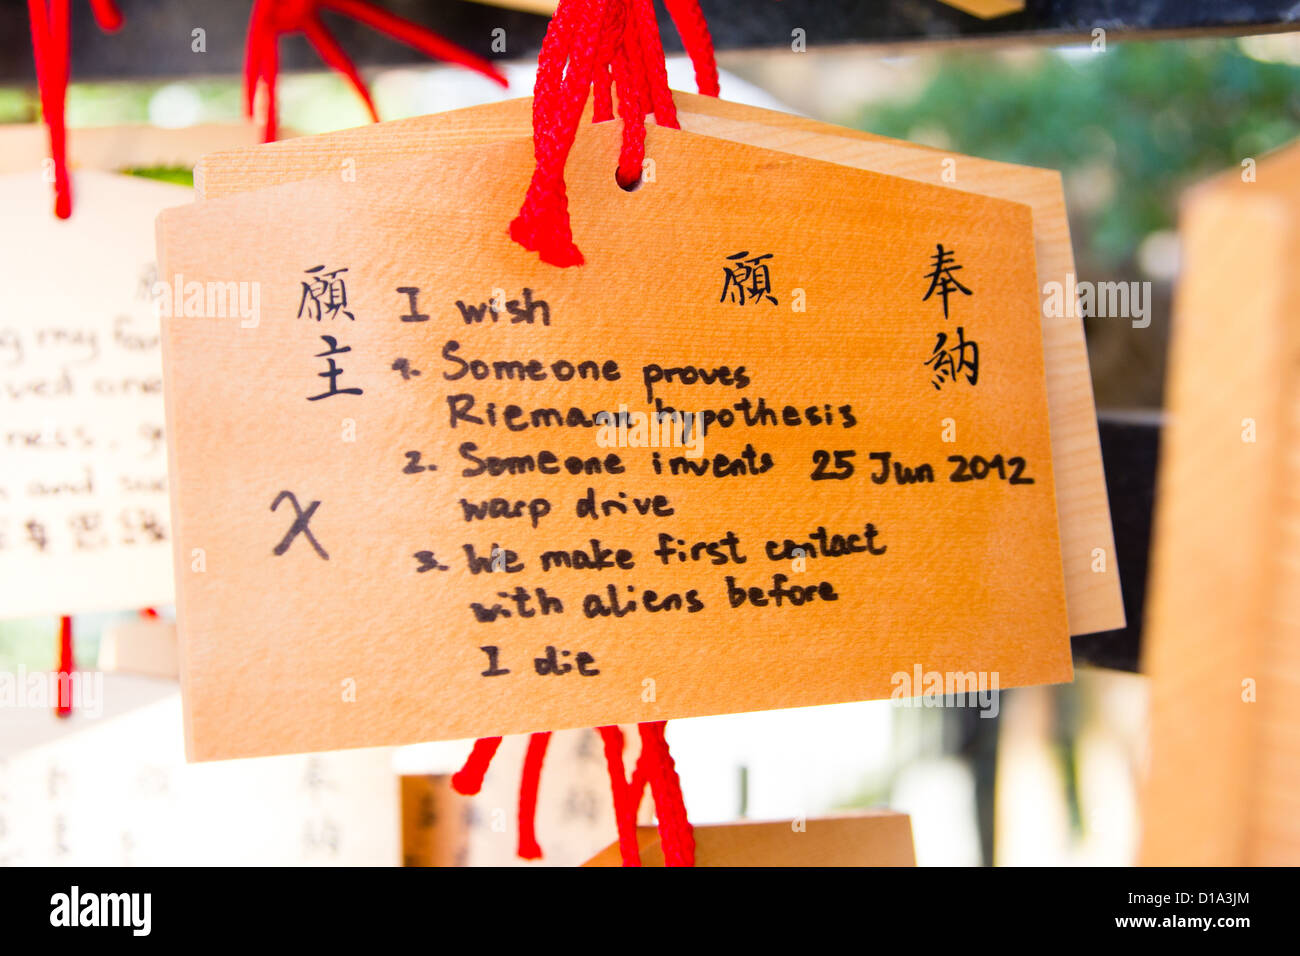 奉納
願
願主
I wish
1. Someone proves
Riemann hypothesis
2. Someone invents 25 Jun 2012
warp drive
3. We make first contact
with aliens before
I die
χ
ng my fa
ved one
ness.
and
alamy
a
alamy
Image ID: D1A3JM
www.alamy.com